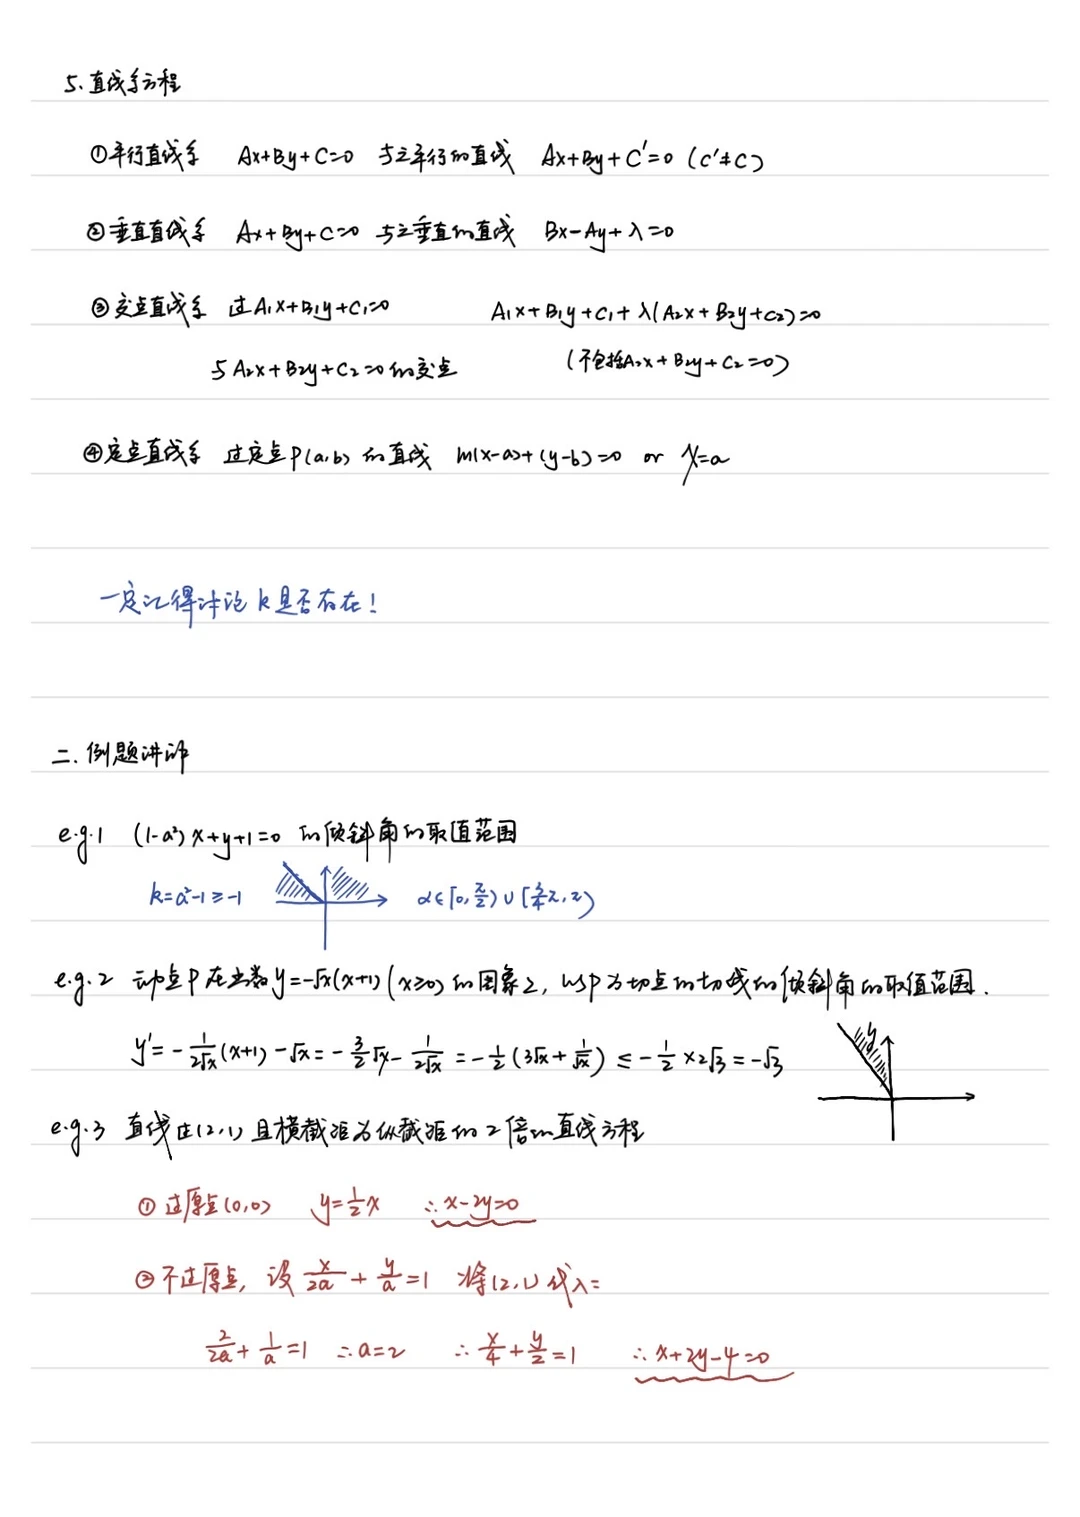 5. 直线系方程
①平行直线系 Ax+By+C=0 与之平行的直线 Ax+By+C'=0 (C'≠C)
②垂直直线系 Ax+By+C=0 与之垂直的直线 Bx-Ay+λ=0
③交点直线系 过A₁x+B₁y+C₁=0 A₁x+B₁y+C₁+λ(A₂x+B₂y+C₂)=0
与A₂x+B₂y+C₂=0的交点 (不包括A₂x+B₂y+C₂=0)
④定点直线系 过定点P(a,b)的直线 m(x-a)+(y-b)=0 or x=a
一定记得讨论k是否存在!
二. 例题讲评
e.g.1 (1-a²)x+y+1=0 的倾斜角的取值范围
k=a²-1≥-1 α∈[0,π/2)∪[3/4π,π)
e.g.2 动点P在函数y=-√x(x+1)(x≥0)的图象上, 以P为切点的切线的倾斜角的取值范围.
y'=-1/(2√x)(x+1)-√x=-3/2√x-1/(2√x)=-1/2(3√x+1/√x)≤-1/2×2√3=-√3
y
e.g.3 直线过(2,1)且横截距为纵截距的2倍的直线方程
①过原点(0,0) y=1/2x ∴x-2y=0
②不过原点, 设x/2a+y/a=1 将(2,1)代入=
2/2a+1/a=1 ∴a=2 ∴x/4+y/2=1 ∴x+2y-4=0